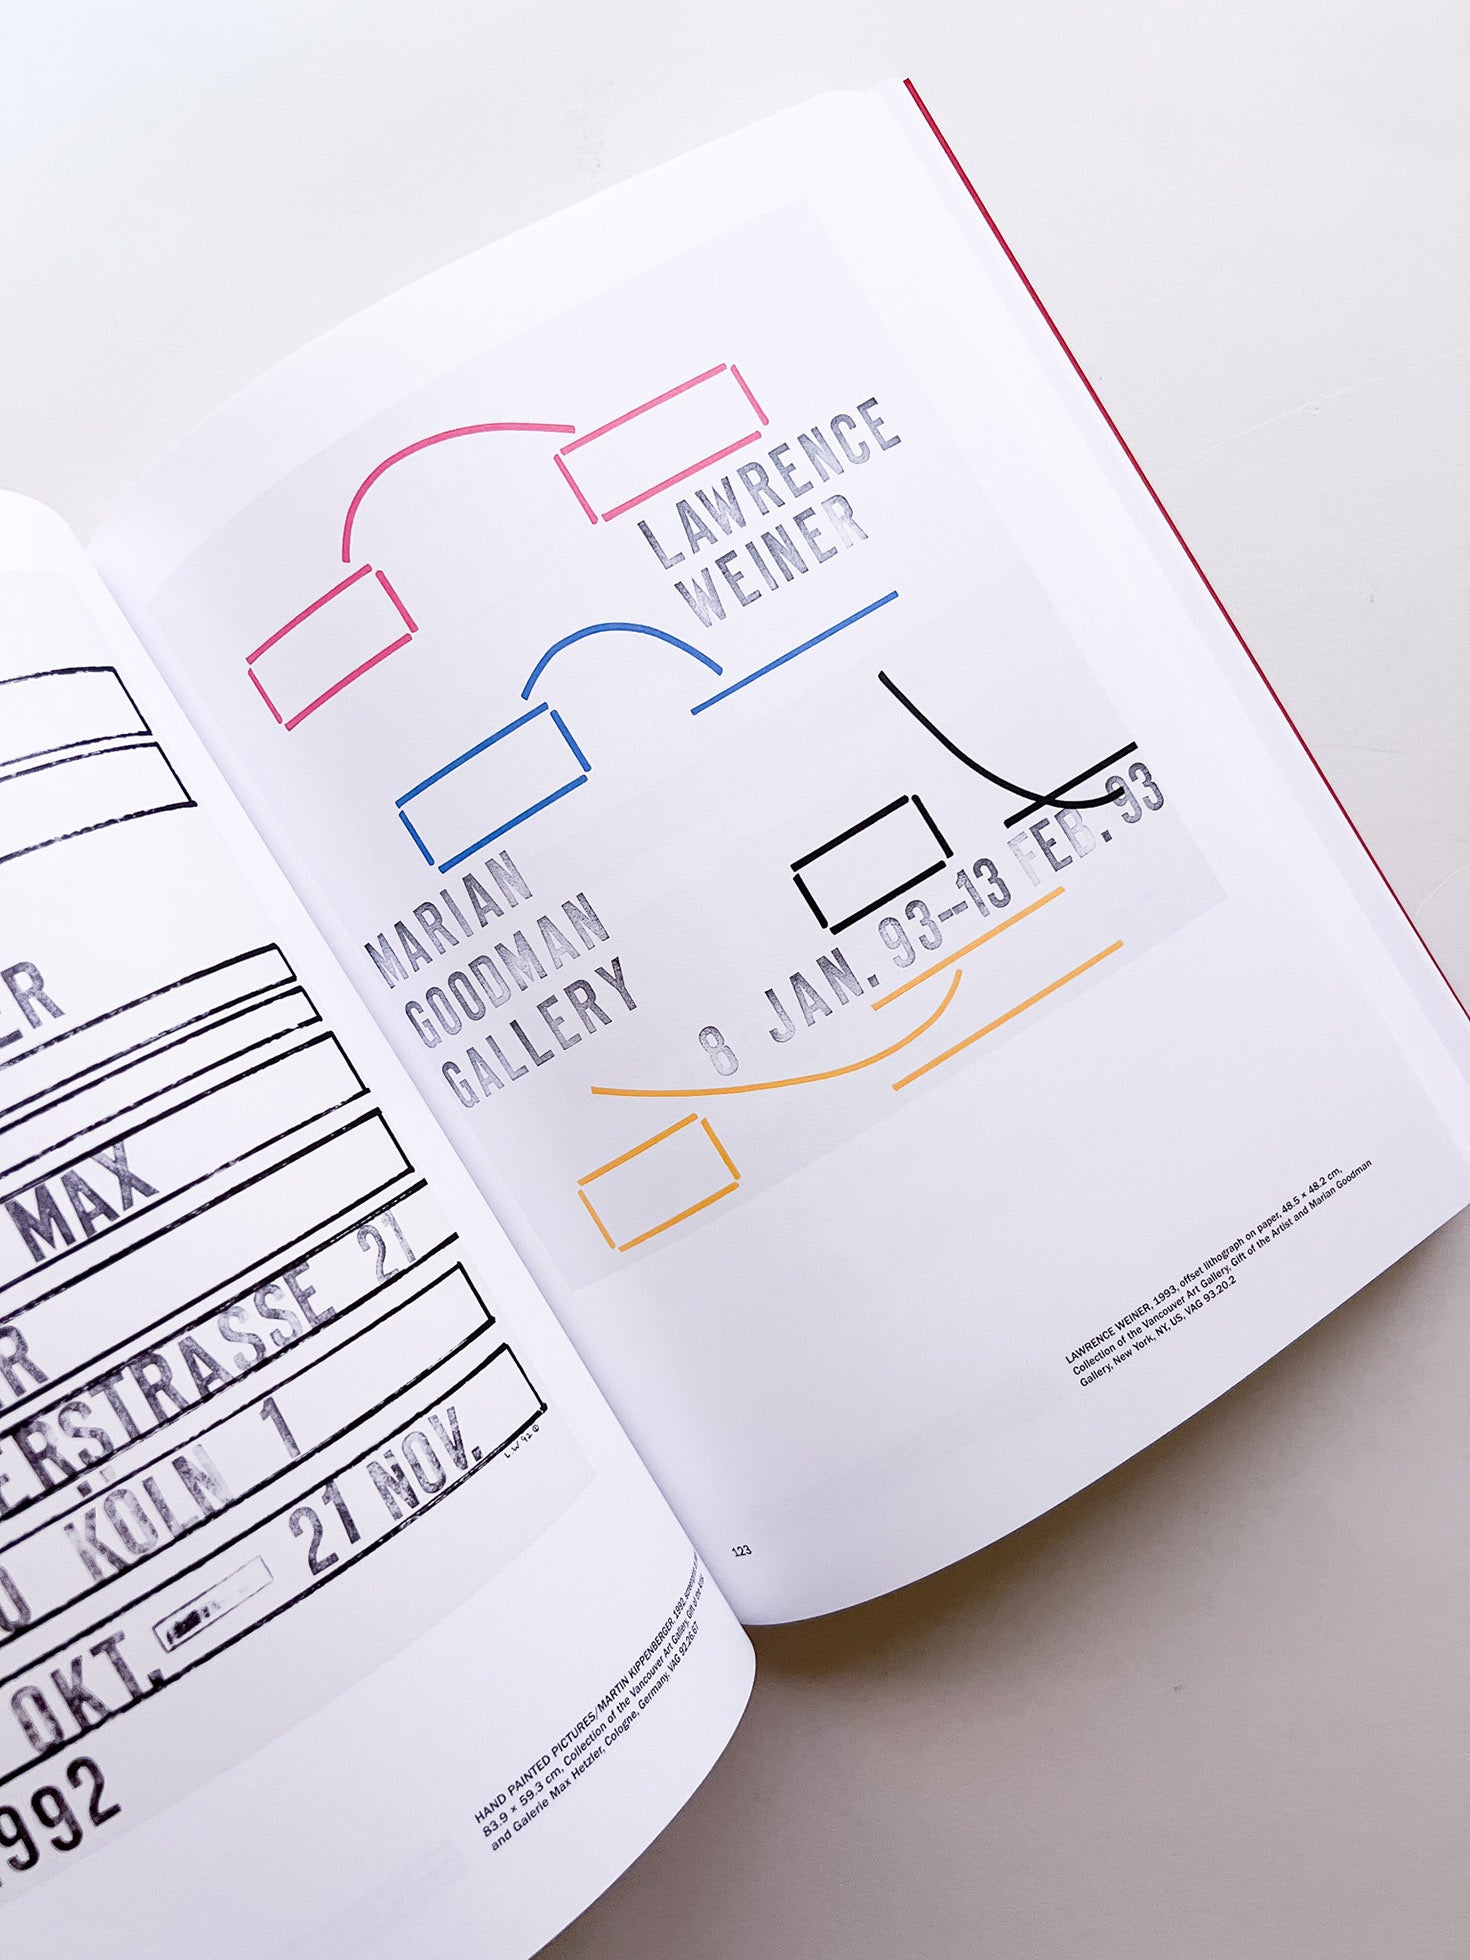 MAX
ERSTRASSE 21
KÖLN 1
OKT. 21 NOV.
1992
L.W 92 ©
HAND PAINTED PICTURES/MARTIN KIPPENBERGER, 1992, screenprint
83.9 × 59.3 cm, Collection of the Vancouver Art Gallery, Gift of the
and Galerie Max Hetzler, Cologne, Germany, VAG 92.26.67
LAWRENCE
WEINER
MARIAN
GOODMAN
GALLERY
8 JAN. 93–13 FEB. 93
LAWRENCE WEINER, 1993, offset lithograph on paper, 48.5 × 48.2 cm,
Collection of the Vancouver Art Gallery, Gift of the Artist and Marian Goodman
Gallery, New York, NY, US, VAG 93.20.2
123